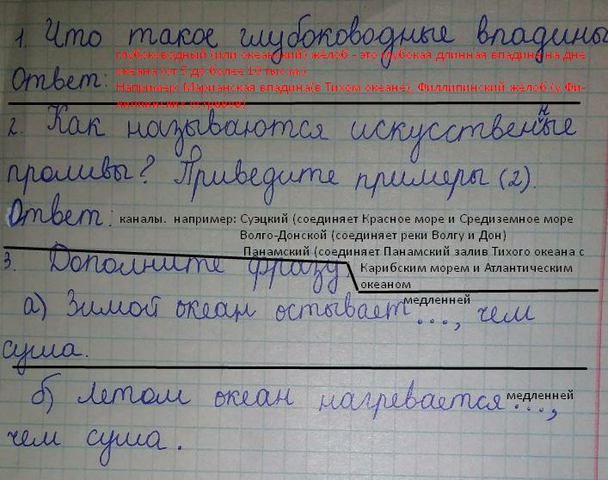 1. Что такое глубоководные впадины
глубоководный (или океанский) желоб - это глубокая длинная впадина на дне
Ответ: океана (от 5 до более 10 тыс.м.)
Например: Марианская впадина(в Тихом океане), Филлипинский желоб (у Фи-
липпинских островов)
2. Как называются искусственные
проливы? Приведите примеры (2).
Ответ: каналы. например: Суэцкий (соединяет Красное море и Средиземное море
Волго-Донской (соединяет реки Волгу и Дон)
Панамский (соединяет Панамский залив Тихого океана с
3. Дополните фразу Карибским морем и Атлантическим
океаном
медленней
а) Зимой океан остывает ..., чем
суша.
медленней
б) Летом океан нагревается ...,
чем суша.